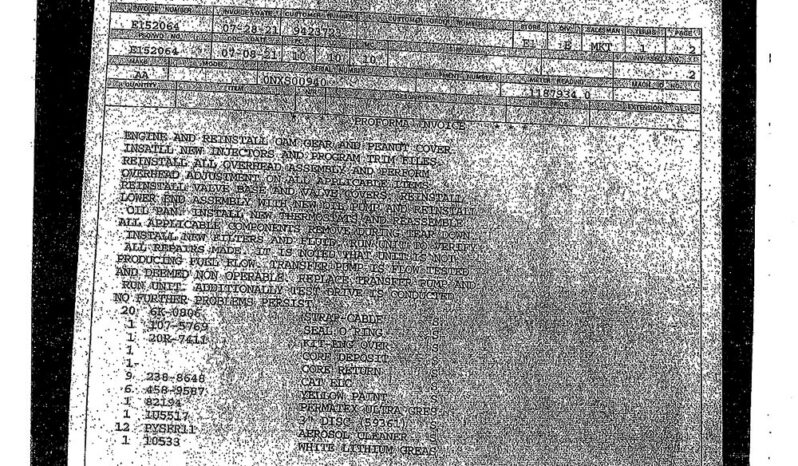 INVOICE NUMBER INVOICE DATE CUSTOMER NUMBER CUSTOMER ORDER NUMBER STORE DIV SALESMAN TERMS PAGE
E152064 07-28-21 9423723 E1 B MKT 1 2
PSO/WO NO.
E152064 07-08-21 10 10 10 2
MAKE MODEL SERIAL NUMBER EQUIPMENT NUMBER METER READING MACH.
AA 0NXS00940 1187934.0
QUANTITY ITEM N/R DESCRIPTION UNIT PRICE EXTENSION
* PROFORMA INVOICE * * *
ENGINE AND REINSTALL CAM GEAR AND PEANUT COVER
INSATLL NEW INJECTORS AND PROGRAM TRIM FILES.
REINSTALL ALL OVERHEAD ASSEMBLY AND PERFORM
OVERHEAD ADJUSTMENT ON ALL APPLICABLE ITEMS
REINSTALL VALVE BASE AND VALVE COVERS. REINSTALL
LOWER END ASSEMBLY WITH NEW OIL PUMP AND REINSTALL
OIL PAN. INSTALL NEW THERMOSTATS AND REASSEMBLE
ALL APPLICABLE COMPONENTS REMOVE DURING TEAR DOWN
INSTALL NEW FILTERS AND FLUID. RUN UNIT TO VERIFY
ALL REPAIRS MADE. IT IS NOTED THAT UNIT IS NOT
PRODUCING FUEL FLOW. TRANSFER PUMP IS FLOW TESTED
AND DEEMED NON OPERABLE. REPLACE TRANSFER PUMP AND
RUN UNIT. ADDITIONALLY TEST DRIVE IS CONDUCTED
NO FURTHER PROBLEMS PERSIST
20 6K-0806 STRAP-CABLE S
1 107-5769 SEAL O RING S
1 20R-7411 KIT-ENG OVER S
1 CORE DEPOSIT
1- CORE RETURN
9 238-8648 CAT ELC S
6 458-9587 YELLOW PAINT S
1 82194 PERMATEX ULTRA GRES
1 1U5517 3" DISC (59361) S
12 PYSER11 AEROSOL CLEANER S
1 10533 WHITE LITHIUM GREAS